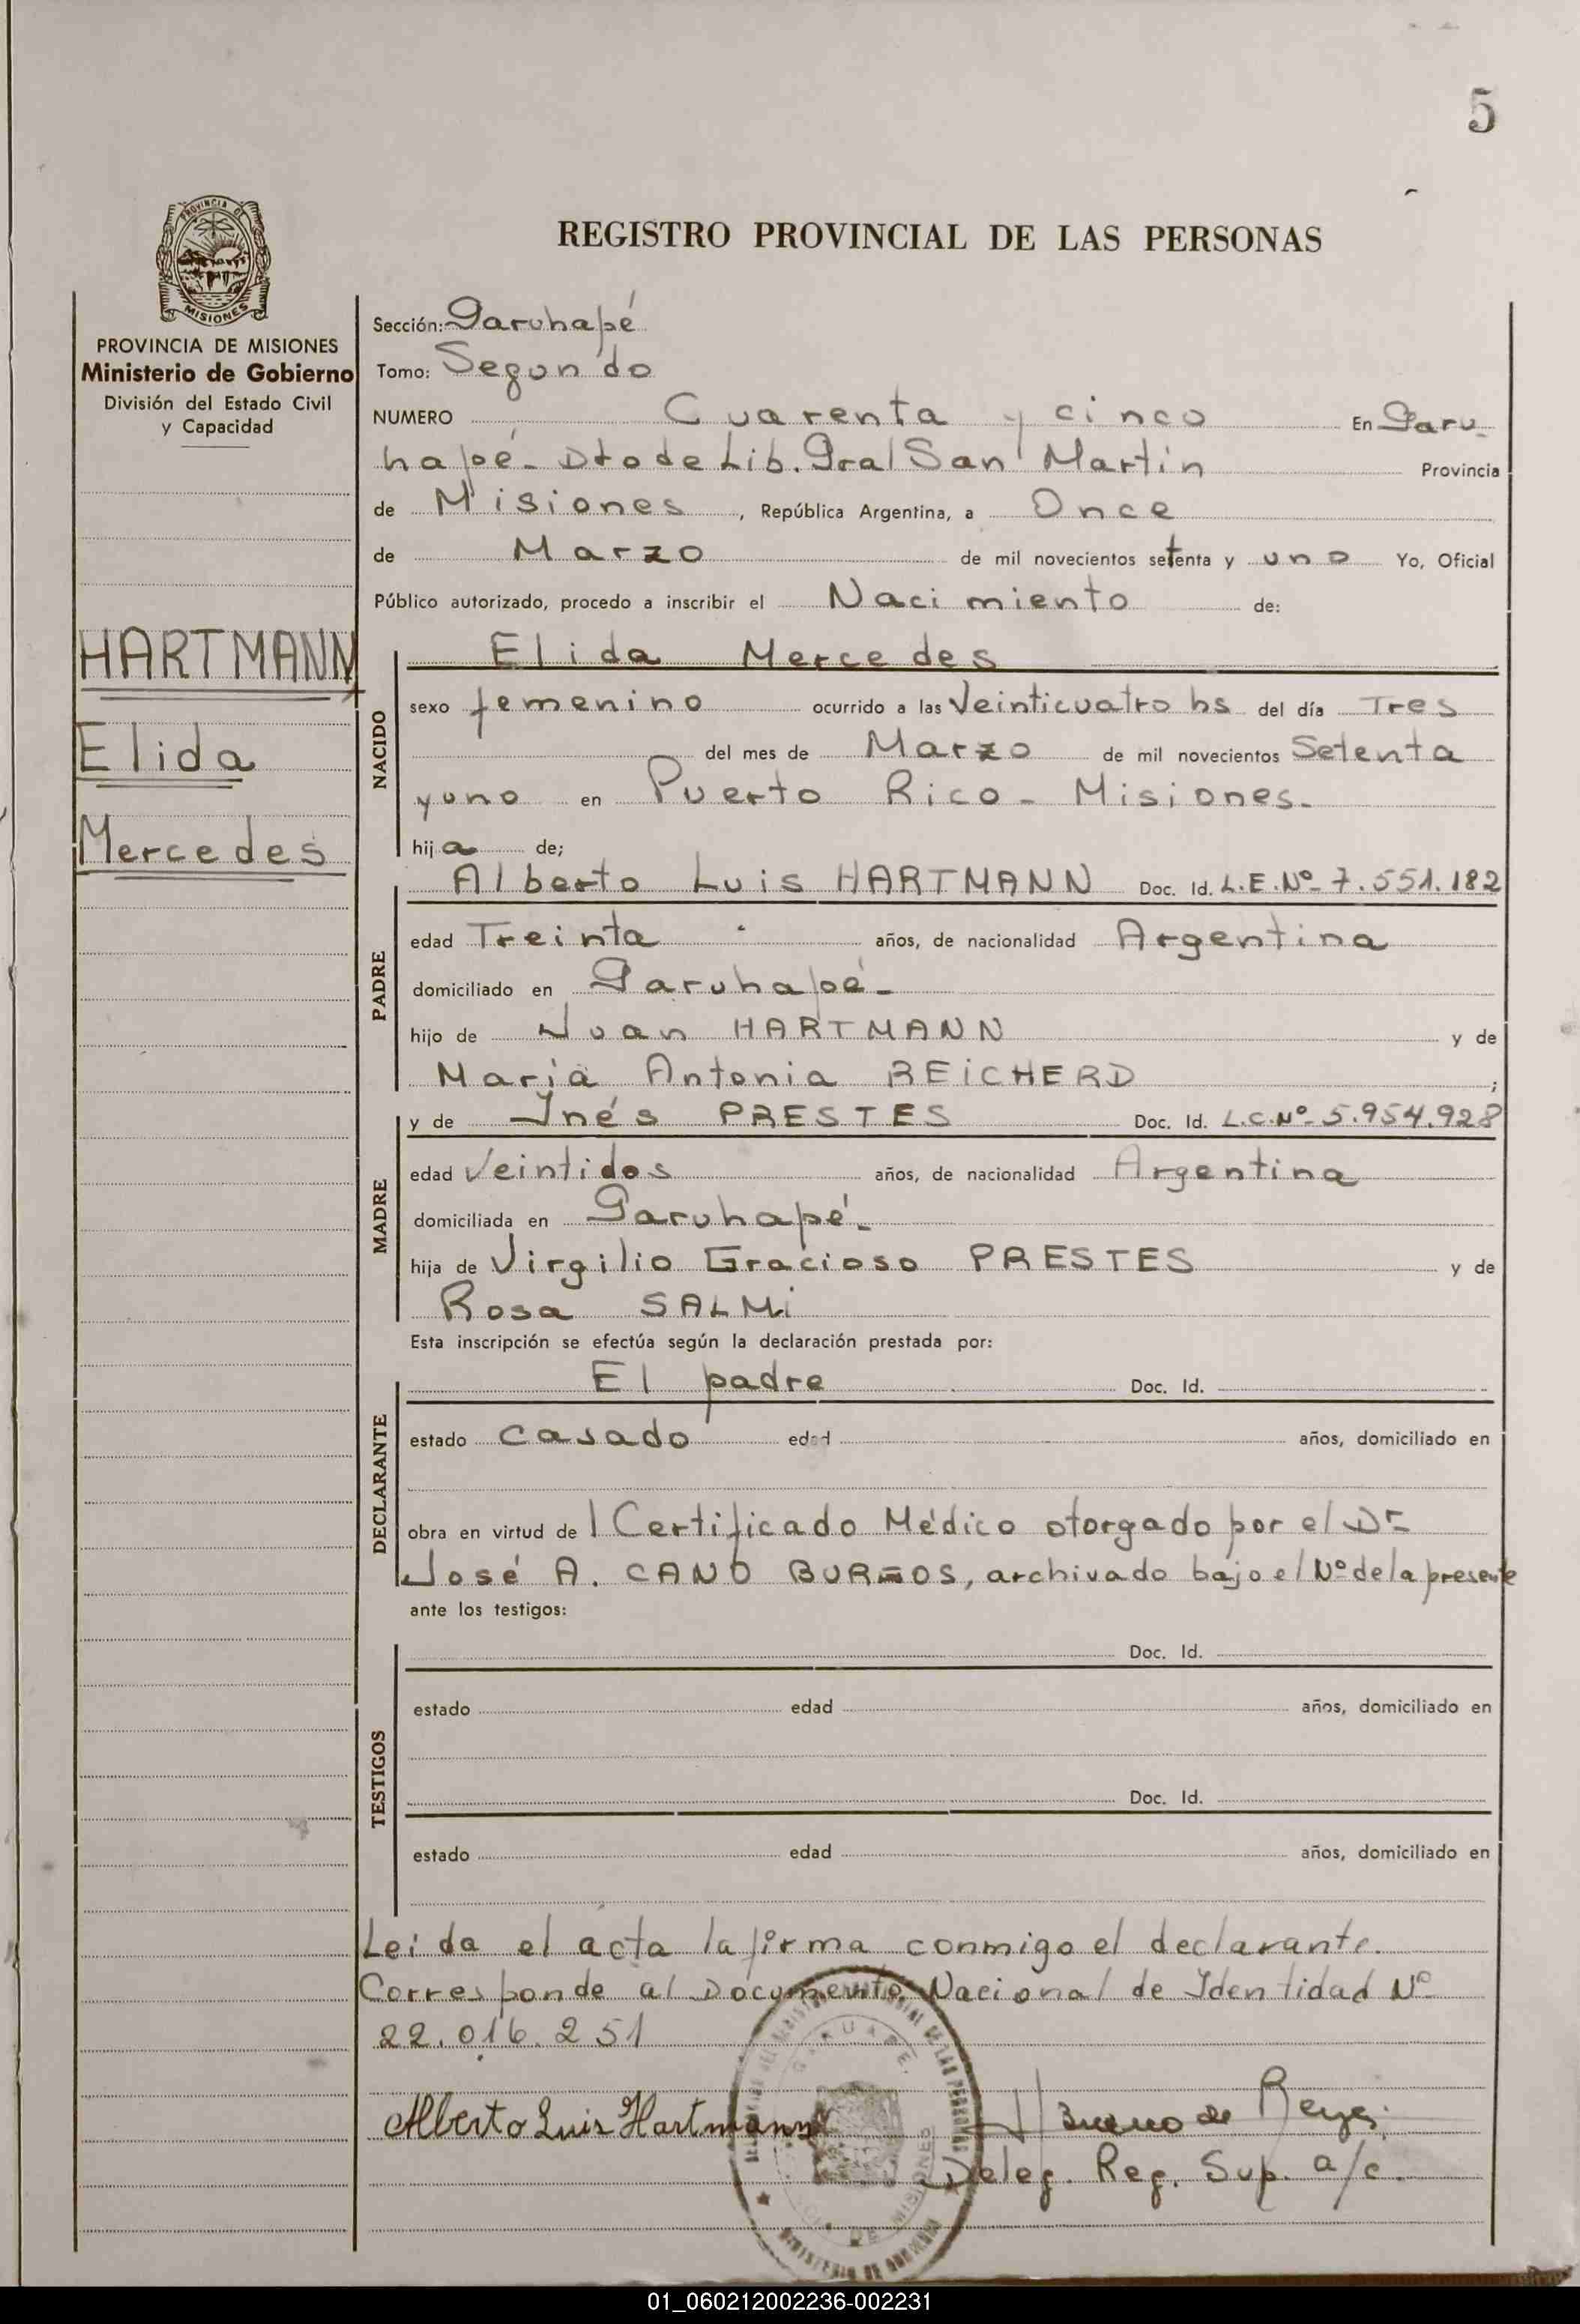 5
PROVINCIA DE
MISIONES
REGISTRO PROVINCIAL DE LAS PERSONAS
PROVINCIA DE MISIONES
Ministerio de Gobierno
División del Estado Civil
y Capacidad
HARTMANN
Elida
Mercedes
Sección: Garuhapé
Tomo: Segundo
NUMERO Cuarenta y cinco En Garu-
hapé- Dto de Lib. Gral San Martín Provincia
de Misiones, República Argentina, a Once
de Marzo de mil novecientos setenta y uno Yo, Oficial
Público autorizado, procedo a inscribir el Nacimiento de:
NACIDO
Elida Mercedes
sexo femenino ocurrido a las Veinticuatro hs del día Tres
del mes de Marzo de mil novecientos Setenta
y uno en Puerto Rico - Misiones-
hija de;
PADRE
Alberto Luis HARTMANN Doc. Id. L.E.Nº- 7.551.182
edad Treinta años, de nacionalidad Argentina
domiciliado en Garuhapé-
hijo de Juan HARTMANN y de
María Antonia REICHERD ;
MADRE
y de Inés PRESTES Doc. Id. L.C.Nº- 5.954.928
edad Veintidos años, de nacionalidad Argentina
domiciliada en Garuhapé-
hija de Virgilio Gracioso PRESTES y de
Rosa SALMi
Esta inscripción se efectúa según la declaración prestada por:
DECLARANTE
El padre Doc. Id.
estado Casado edad años, domiciliado en
obra en virtud de 1 Certificado Médico otorgado por el Dr-
José A. CANO BURGOS, archivado bajo el Nº de la presente
ante los testigos:
TESTIGOS
Doc. Id.
estado edad años, domiciliado en
Doc. Id.
estado edad años, domiciliado en
Leida el acta la firma conmigo el declarante.
Corresponde al Documento Nacional de Identidad Nº
22.016.251
Alberto Luis Hartmann
Bueno de Reyes
Deleg. Reg. Sup. a/c.
DE MISIONES
01_060212002236-002231